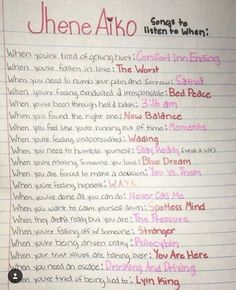 Jhene Aiko
Songs to
listen to When:
When you're tired of getting hurt: Comfort Inn Ending
When you've fallen in love: The Worst
When you need to numb your pain and sorrow:
When you're feeling exhausted & irresponsible: Bed Peace
When you've been through hell & pain: 3:16 am
When you found the right one: Now Balance
When you feel like you're running out of time: Moments
When you're feeling unappreciated: Wading
When you need to humble yourself: Stay Ready (What a Life)
When you're missing someone you love: Blue Dream
When you are forced to make a decision: vs. Them
When you're feeling hopeless: W.A.Y.S
When you've done all you can do: Never Call Me
When you want to calm yourself down: Spotless Mind
When they don't ready but you are: The Pressure
When you're falling off w/ Someone: Stranger
When you're being driven crazy: Psilocybin
When your trust issues are taking over: You Are Here
When you need an escape: Drinking And Driving
When you're tired of being lied to: Lyin King